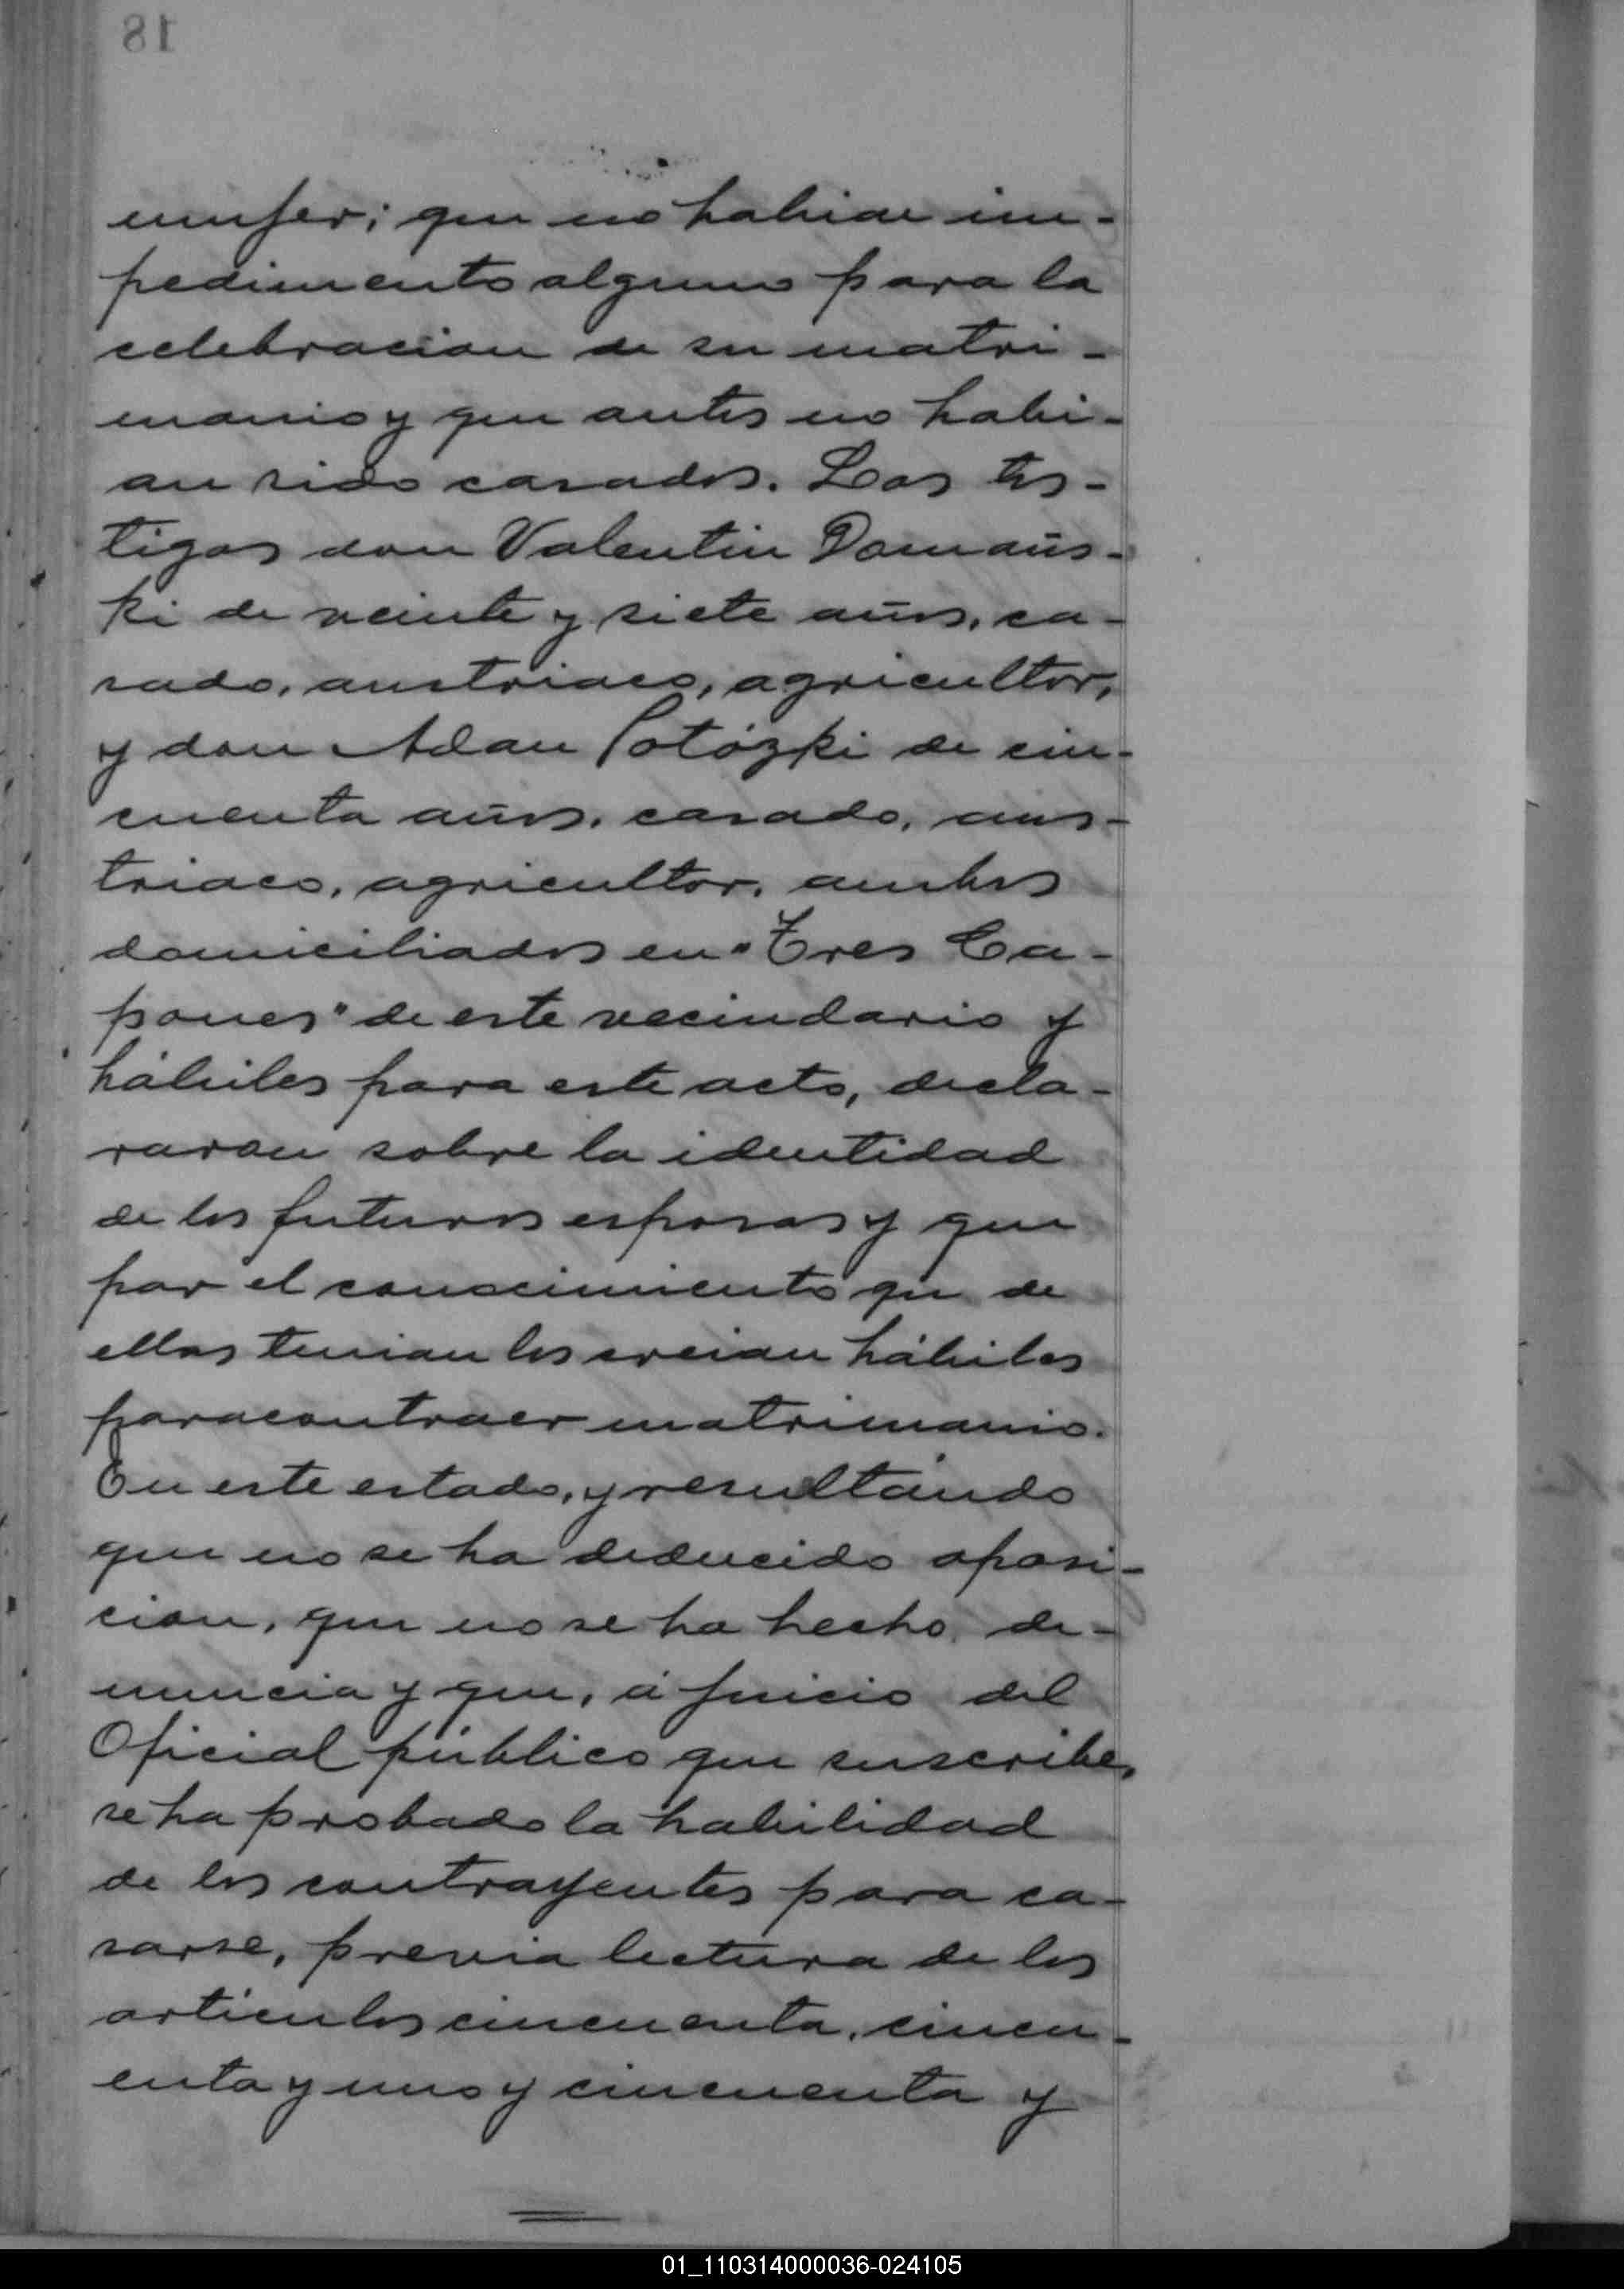 18
mujer; que no habia im-
pedimento alguno para la
celebracion de su matri-
monio y que antes no habi-
an sido casados. Los tes-
tigos don Valentin Domañs-
ki de veinte y siete años, ca-
sado, austriaco, agricultor,
y don Adan Potózki de cin-
cuenta años, casado, aus-
triaco, agricultor, ambos
domiciliados en "Tres Ca-
pones" de este vecindario y
hábiles para este acto, decla-
raron sobre la identidad
de los futuros esposos y que
por el conocimiento que de
ellos tenian los creian hábiles
para contraer matrimonio.
En este estado, y resultando
que no se ha deducido oposi-
cion, que no se ha hecho de-
nuncia y que, á juicio del
Oficial público que suscribe,
se ha probado la habilidad
de los contrayentes para ca-
sarse, previa lectura de los
articulos cincuenta, cincu-
enta y uno y cincuenta y
01_110314000036-024105